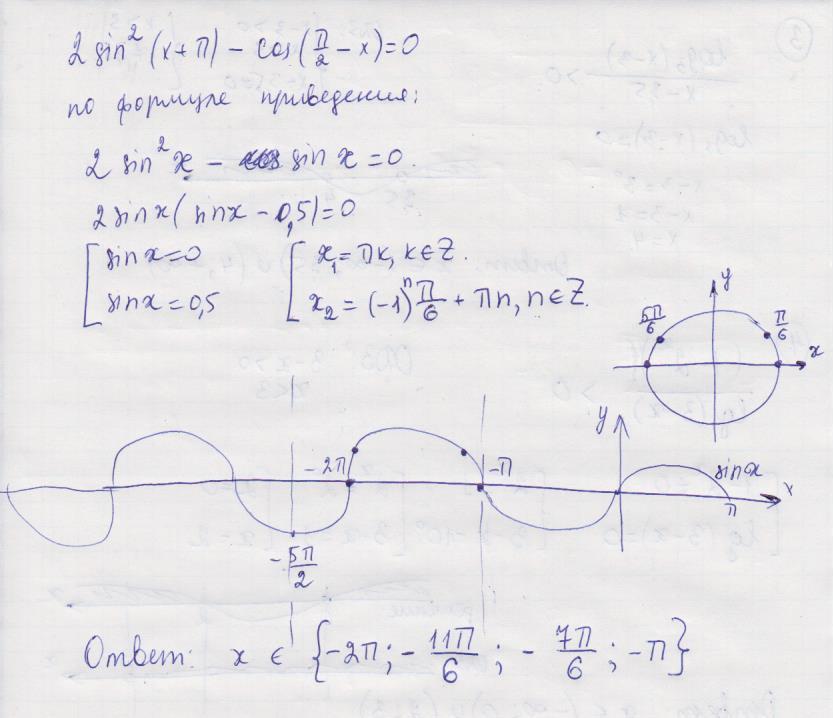 2 sin² (x+π) − cos(π/2 − x)=0
по формуле приведения:
2 sin² x − sin x = 0.
2 sin x( sin x − 0,5)=0
[ sin x=0 [ x₁= πk, k∈Z.
[ sin x = 0,5 [ x₂ = (−1)ⁿ π/6 + πn, n∈Z.
y
5π/6 π/6
x
y
−2π −π sin x
x
π
−5π/2
Ответ: x ∈ {−2π; −11π/6 ; −7π/6 ; −π}